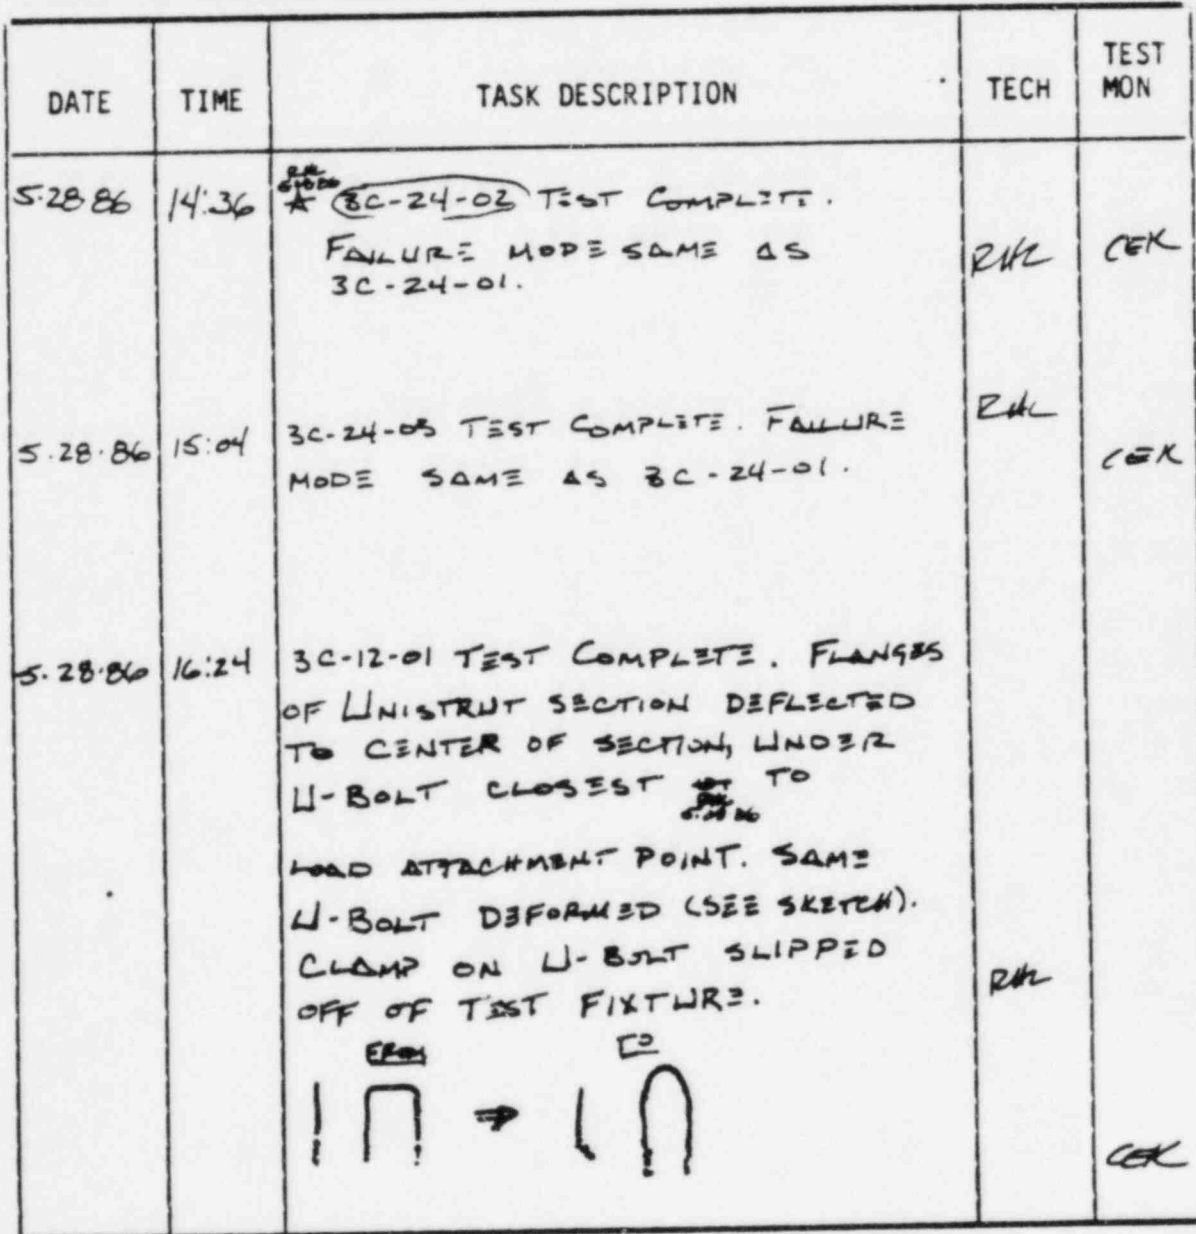 DATE TIME TASK DESCRIPTION TECH TEST MON
5·28 86 14:36 3C-24-02 TEST COMPLETE.
FAILURE MODE SAME AS RHL CEK
3C-24-01.
RHL
5·28·86 15:04 3C-24-03 TEST COMPLETE. FAILURE
MODE SAME AS 3C-24-01. CEK
5·28·86 16:24 3C-12-01 TEST COMPLETE. FLANGES
OF UNISTRUT SECTION DEFLECTED
TO CENTER OF SECTION, UNDER
U-BOLT CLOSEST TO
5·28 86
LOAD ATTACHMENT POINT. SAME
U-BOLT DEFORMED (SEE SKETCH).
CLAMP ON U-BOLT SLIPPED
OFF OF TEST FIXTURE. RHL
FROM TO
CEK